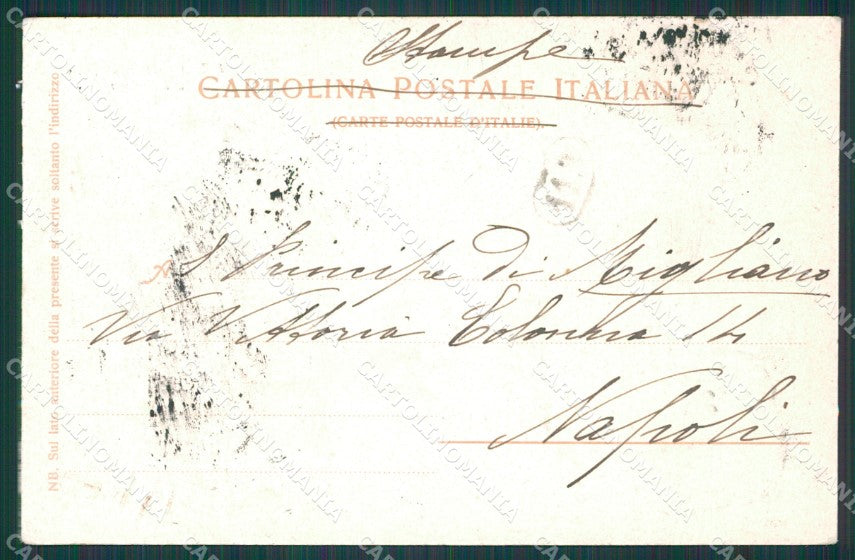 Stampe
CARTOLINA POSTALE ITALIANA
(CARTE POSTALE D'ITALIE).
A
S Principe di Migliano
Via Vittoria Colonna 14
Napoli
NB. Sul lato anteriore della presente si scrive soltanto l'indirizzo
CARTOLINOMANIA